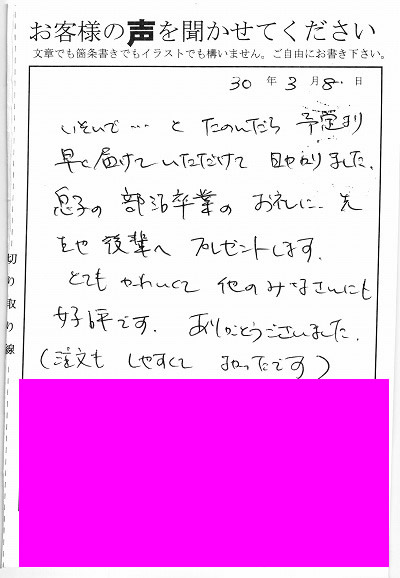 お客様の声を聞かせてください
文章でも箇条書きでもイラストでも構いません。ご自由にお書き下さい。
30年 3月 8日
いそいで… と たのんだら 予定より
早く届けて いただけて 助かりました。
息子の 部活卒業の お礼に… 先
生や 後輩へ プレゼントします。
とても かわいくて 他のみなさんにも
好評です. ありがとうございました.
(注文も しやすくて よかったです)
切り取り線